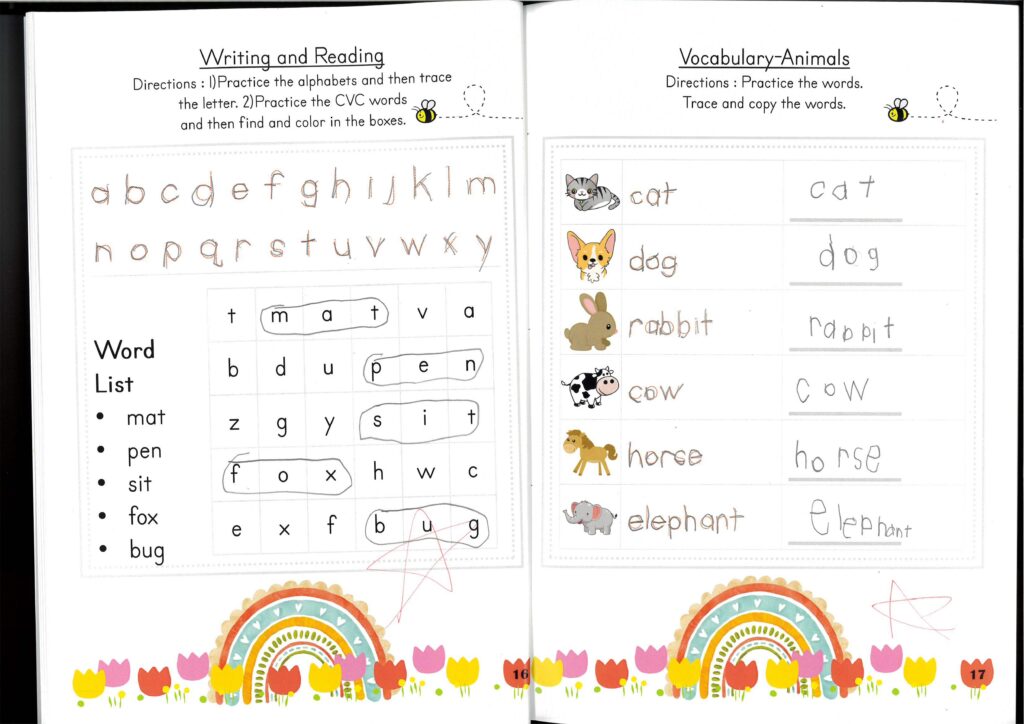 Writing and Reading
Directions : 1)Practice the alphabets and then trace
the letter. 2)Practice the CVC words
and then find and color in the boxes.
a b c d e f g h i j k l m
n o p q r s t u v w x y
t m a t v a
b d u p e n
z g y s i t
f o x h w c
e x f b u g
Word
List
• mat
• pen
• sit
• fox
• bug
16
Vocabulary-Animals
Directions : Practice the words.
Trace and copy the words.
cat cat
dog dog
rabbit rabbit
cow cow
horse horse
elephant Elephant
17